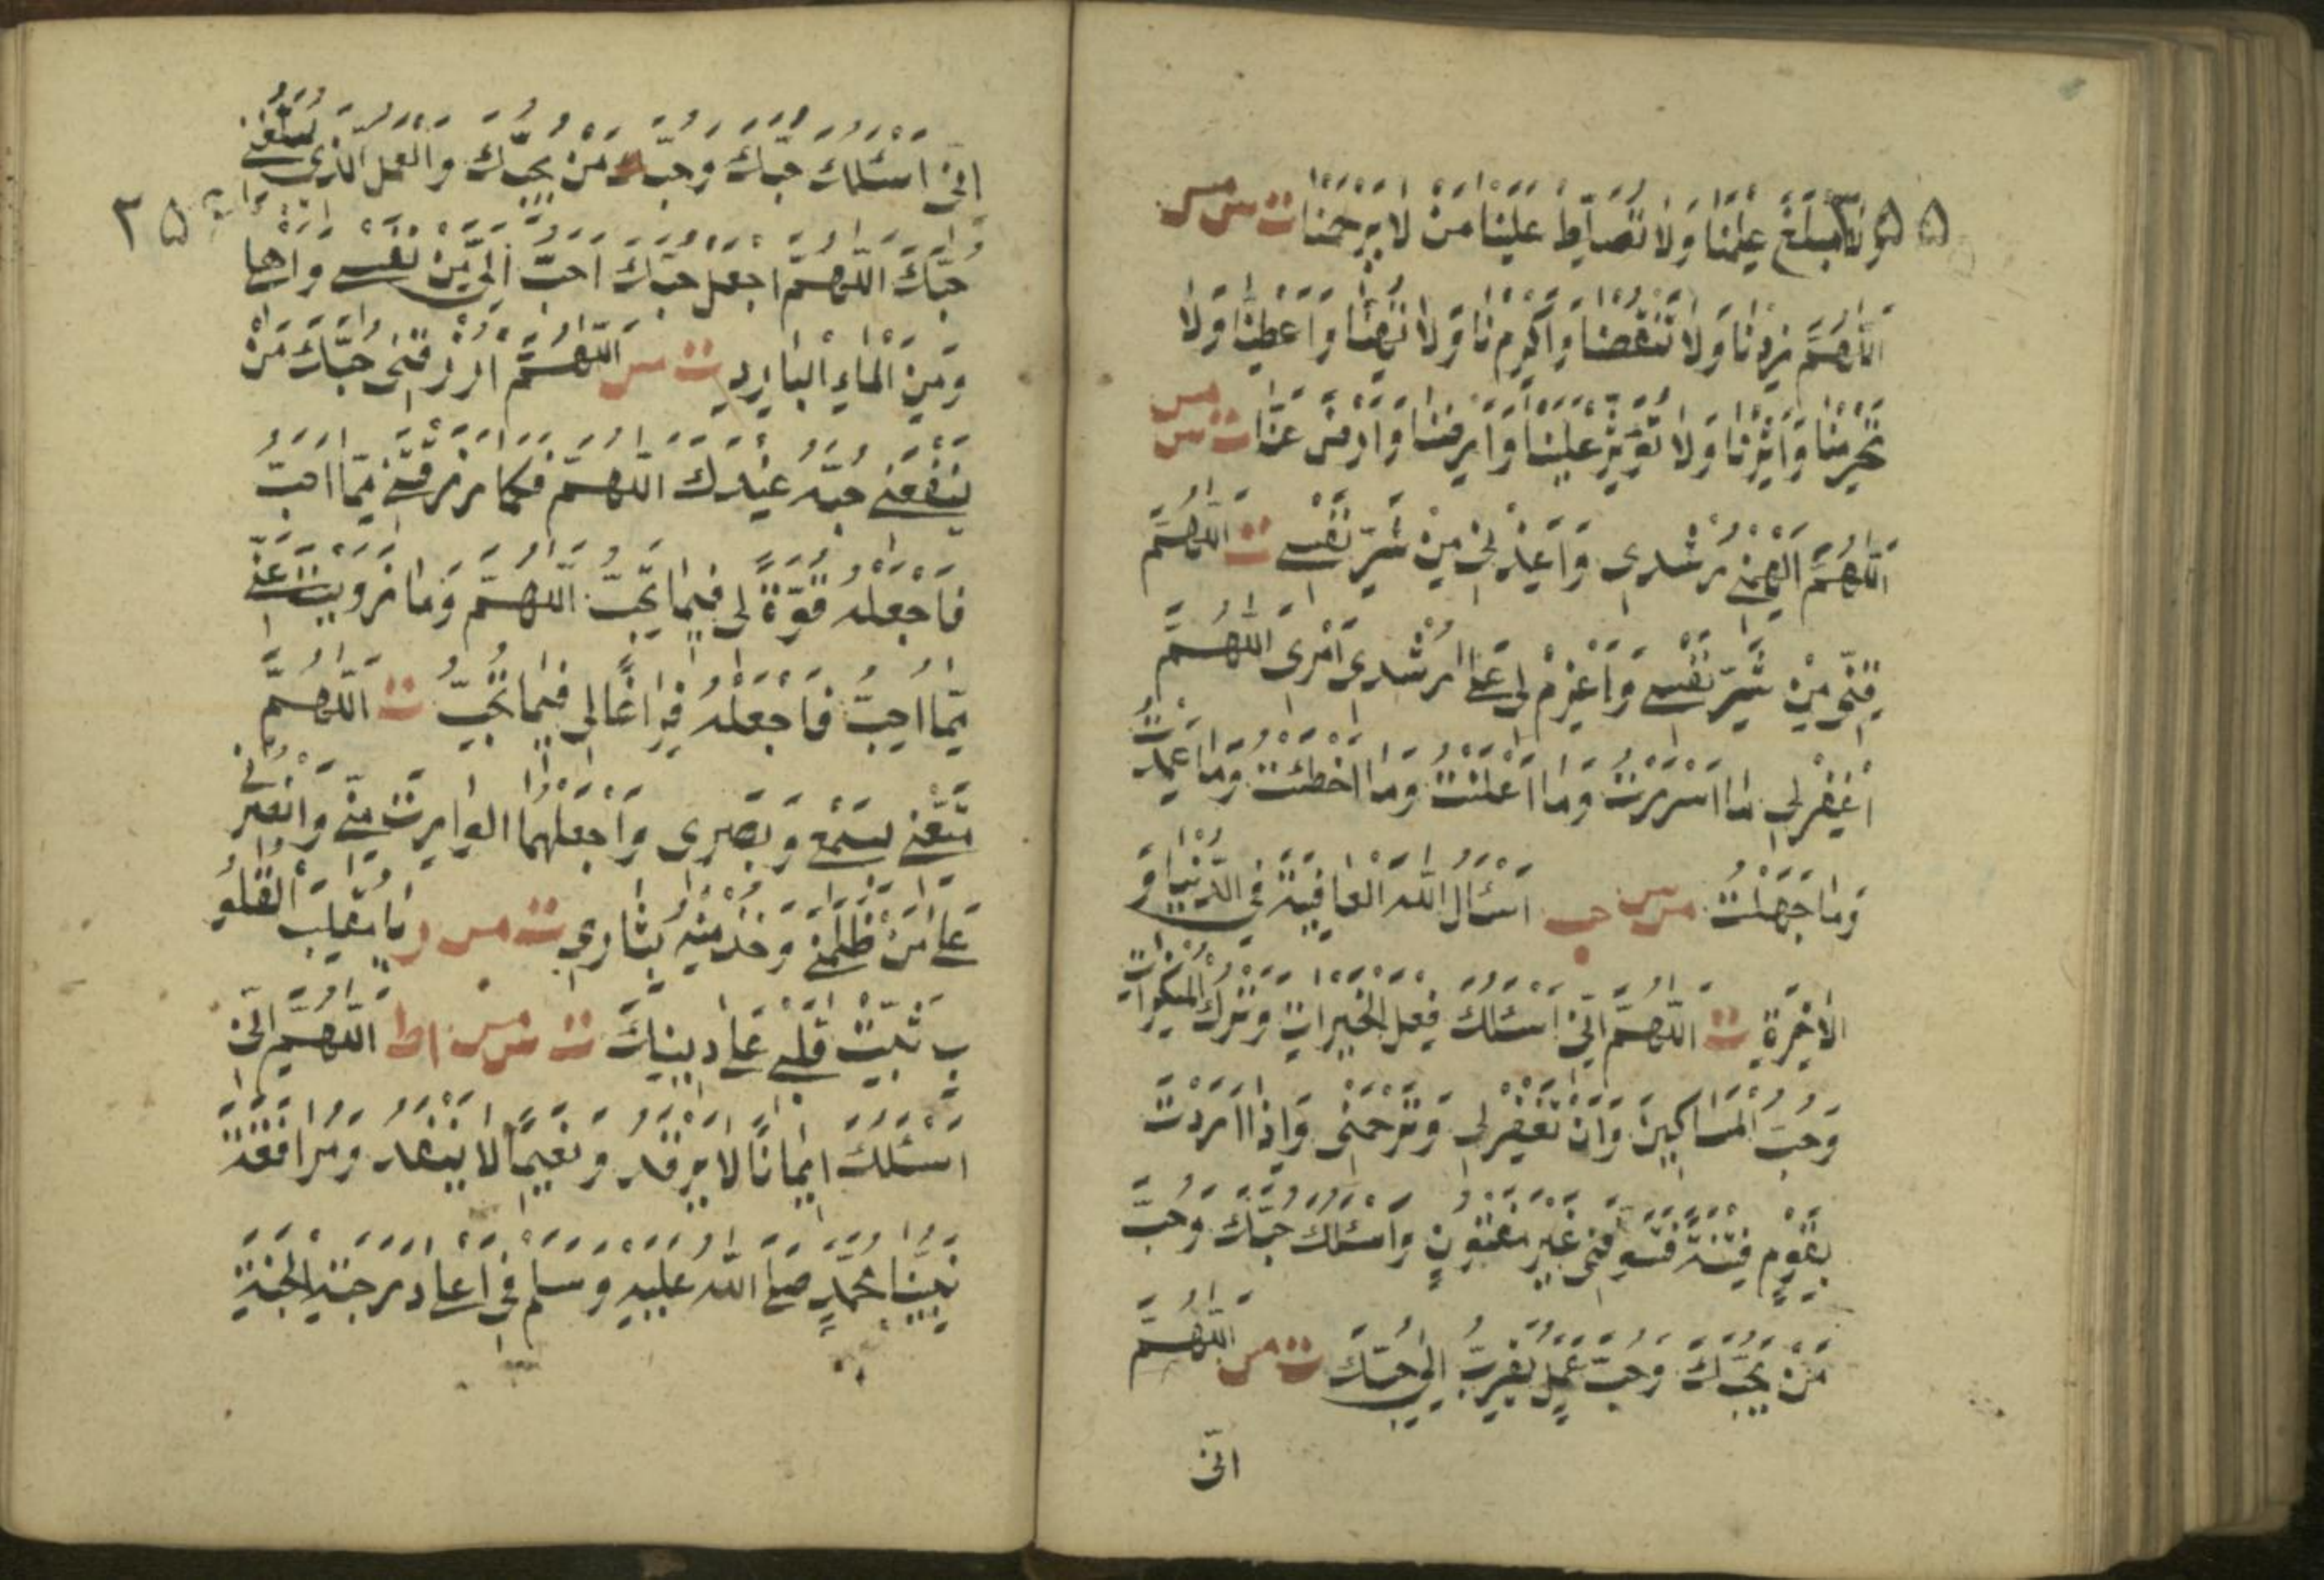 ٢٥٥
وَلَا مَبْلَغَ عِلْمِنَا وَلَا تُسَلِّطْ عَلَيْنَا مَنْ لَا يَرْحَمُنَا ت س مس
اَللّٰهُمَّ زِدْنَا وَلَا تَنْقُصْنَا وَاَكْرِمْنَا وَلَا تُهِنَّا وَاَعْطِنَا وَلَا
تَحْرِمْنَا وَاٰثِرْنَا وَلَا تُؤْثِرْ عَلَيْنَا وَاَرْضِنَا وَارْضَ عَنَّا ت س مس
اَللّٰهُمَّ اَلْهِمْنِي رُشْدِي وَاَعِذْنِي مِنْ شَرِّ نَفْسِي ت اَللّٰهُمَّ
قِنِي مِنْ شَرِّ نَفْسِي وَاعْزِمْ لِي عَلٰى اَرْشَدِ اَمْرِي اَللّٰهُمَّ
اغْفِرْ لِي مَا اَسْرَرْتُ وَمَا اَعْلَنْتُ وَمَا اَخْطَئْتُ وَمَا عَمَدْتُ
وَمَا جَهِلْتُ مس س حب اَسْئَالُ اللّٰهَ الْعَافِيَةَ فِي الدُّنْيَا وَ
الْاٰخِرَةِ ت اَللّٰهُمَّ اِنِّي اَسْئَلُكَ فِعْلَ الْخَيْرَاتِ وَتَرْكَ الْمُنْكَرَاتِ
وَحُبَّ الْمَسَاكِينِ وَاَنْ تَغْفِرَ لِي وَتَرْحَمَنِي وَاِذَا اَرَدْتَ
بِقَوْمٍ فِتْنَةً فَتَوَفَّنِي غَيْرَ مَفْتُونٍ وَاَسْئَلُكَ حُبَّكَ وَحُبَّ
مَنْ يُحِبُّكَ وَحُبَّ عَمَلٍ يُقَرِّبُ اِلٰى حُبِّكَ ت مس اَللّٰهُمَّ
انّى
اِنِّي اَسْئَلُكَ حُبَّكَ وَحُبَّ مَنْ يُحِبُّكَ وَالْعَمَلَ الَّذِي يُبَلِّغُنِي
٢٥٦
حُبَّكَ اَللّٰهُمَّ اجْعَلْ حُبَّكَ اَحَبَّ اِلَيَّ مِنْ نَفْسِي وَاَهْلِي
وَمِنَ الْمَاءِ الْبَارِدِ ت مس اَللّٰهُمَّ ارْزُقْنِي حُبَّكَ مَنْ
يَنْفَعُنِي حُبُّهُ عِنْدَكَ اَللّٰهُمَّ فَكَمَا رَزَقْتَنِي مِمَّا اُحِبُّ
فَاجْعَلْهُ قُوَّةً لِي فِيمَا تُحِبُّ اَللّٰهُمَّ وَمَا زَوَيْتَ عَنِّي
مِمَّا اُحِبُّ فَاجْعَلْهُ فِرَاغًا لِي فِيمَا تُحِبُّ ت اَللّٰهُمَّ
مَتِّعْنِي بِسَمْعِي وَبَصَرِي وَاجْعَلْهُمَا الْوَارِثَ مِنِّي وَانْصُرْنِي
عَلٰى مَنْ ظَلَمَنِي وَخُذْ مِنْهُ بِثَارِي ت مس ر يَا مُقَلِّبَ الْقُلُو
بِ ثَبِّتْ قَلْبِي عَلٰى دِينِكَ ت س مس اط اَللّٰهُمَّ اِنِّي
اَسْئَلُكَ اِيمَانًا لَا يَرْتَدُّ وَنَعِيمًا لَا يَنْفَدُ وَمُرَافَقَةَ
نَبِيِّنَا مُحَمَّدٍ صَلَّى اللّٰهُ عَلَيْهِ وَسَلَّمَ فِي اَعْلٰى دَرَجَةِ الْجَنَّةِ